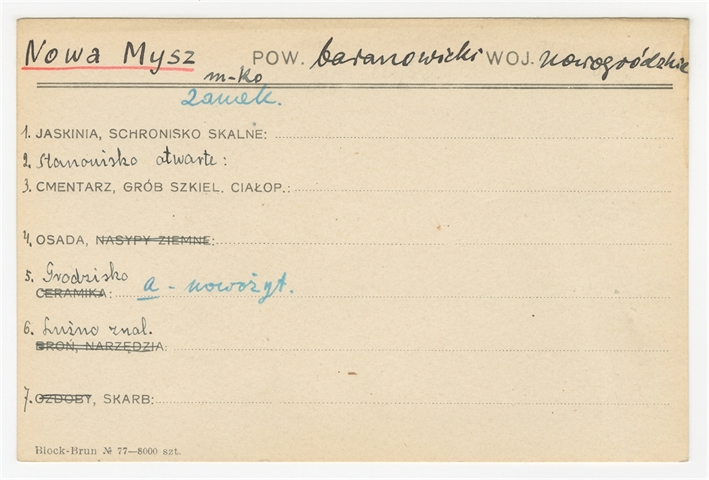 Nowa Mysz POW. baranowicki WOJ. nowogródzkie
m-ko
Zamek.
1. JASKINIA, SCHRONISKO SKALNE:
2. Stanowisko otwarte:
3. CMENTARZ, GRÓB SZKIEL, CIAŁOP.:
4. OSADA, NASYPY ZIEMNE:
5. Grodzisko
CERAMIKA: a - nowożyt.
6. Luźno znal.
BROŃ, NARZĘDZIA:
7. OZDOBY, SKARB:
Block-Brun № 77—8000 szt.